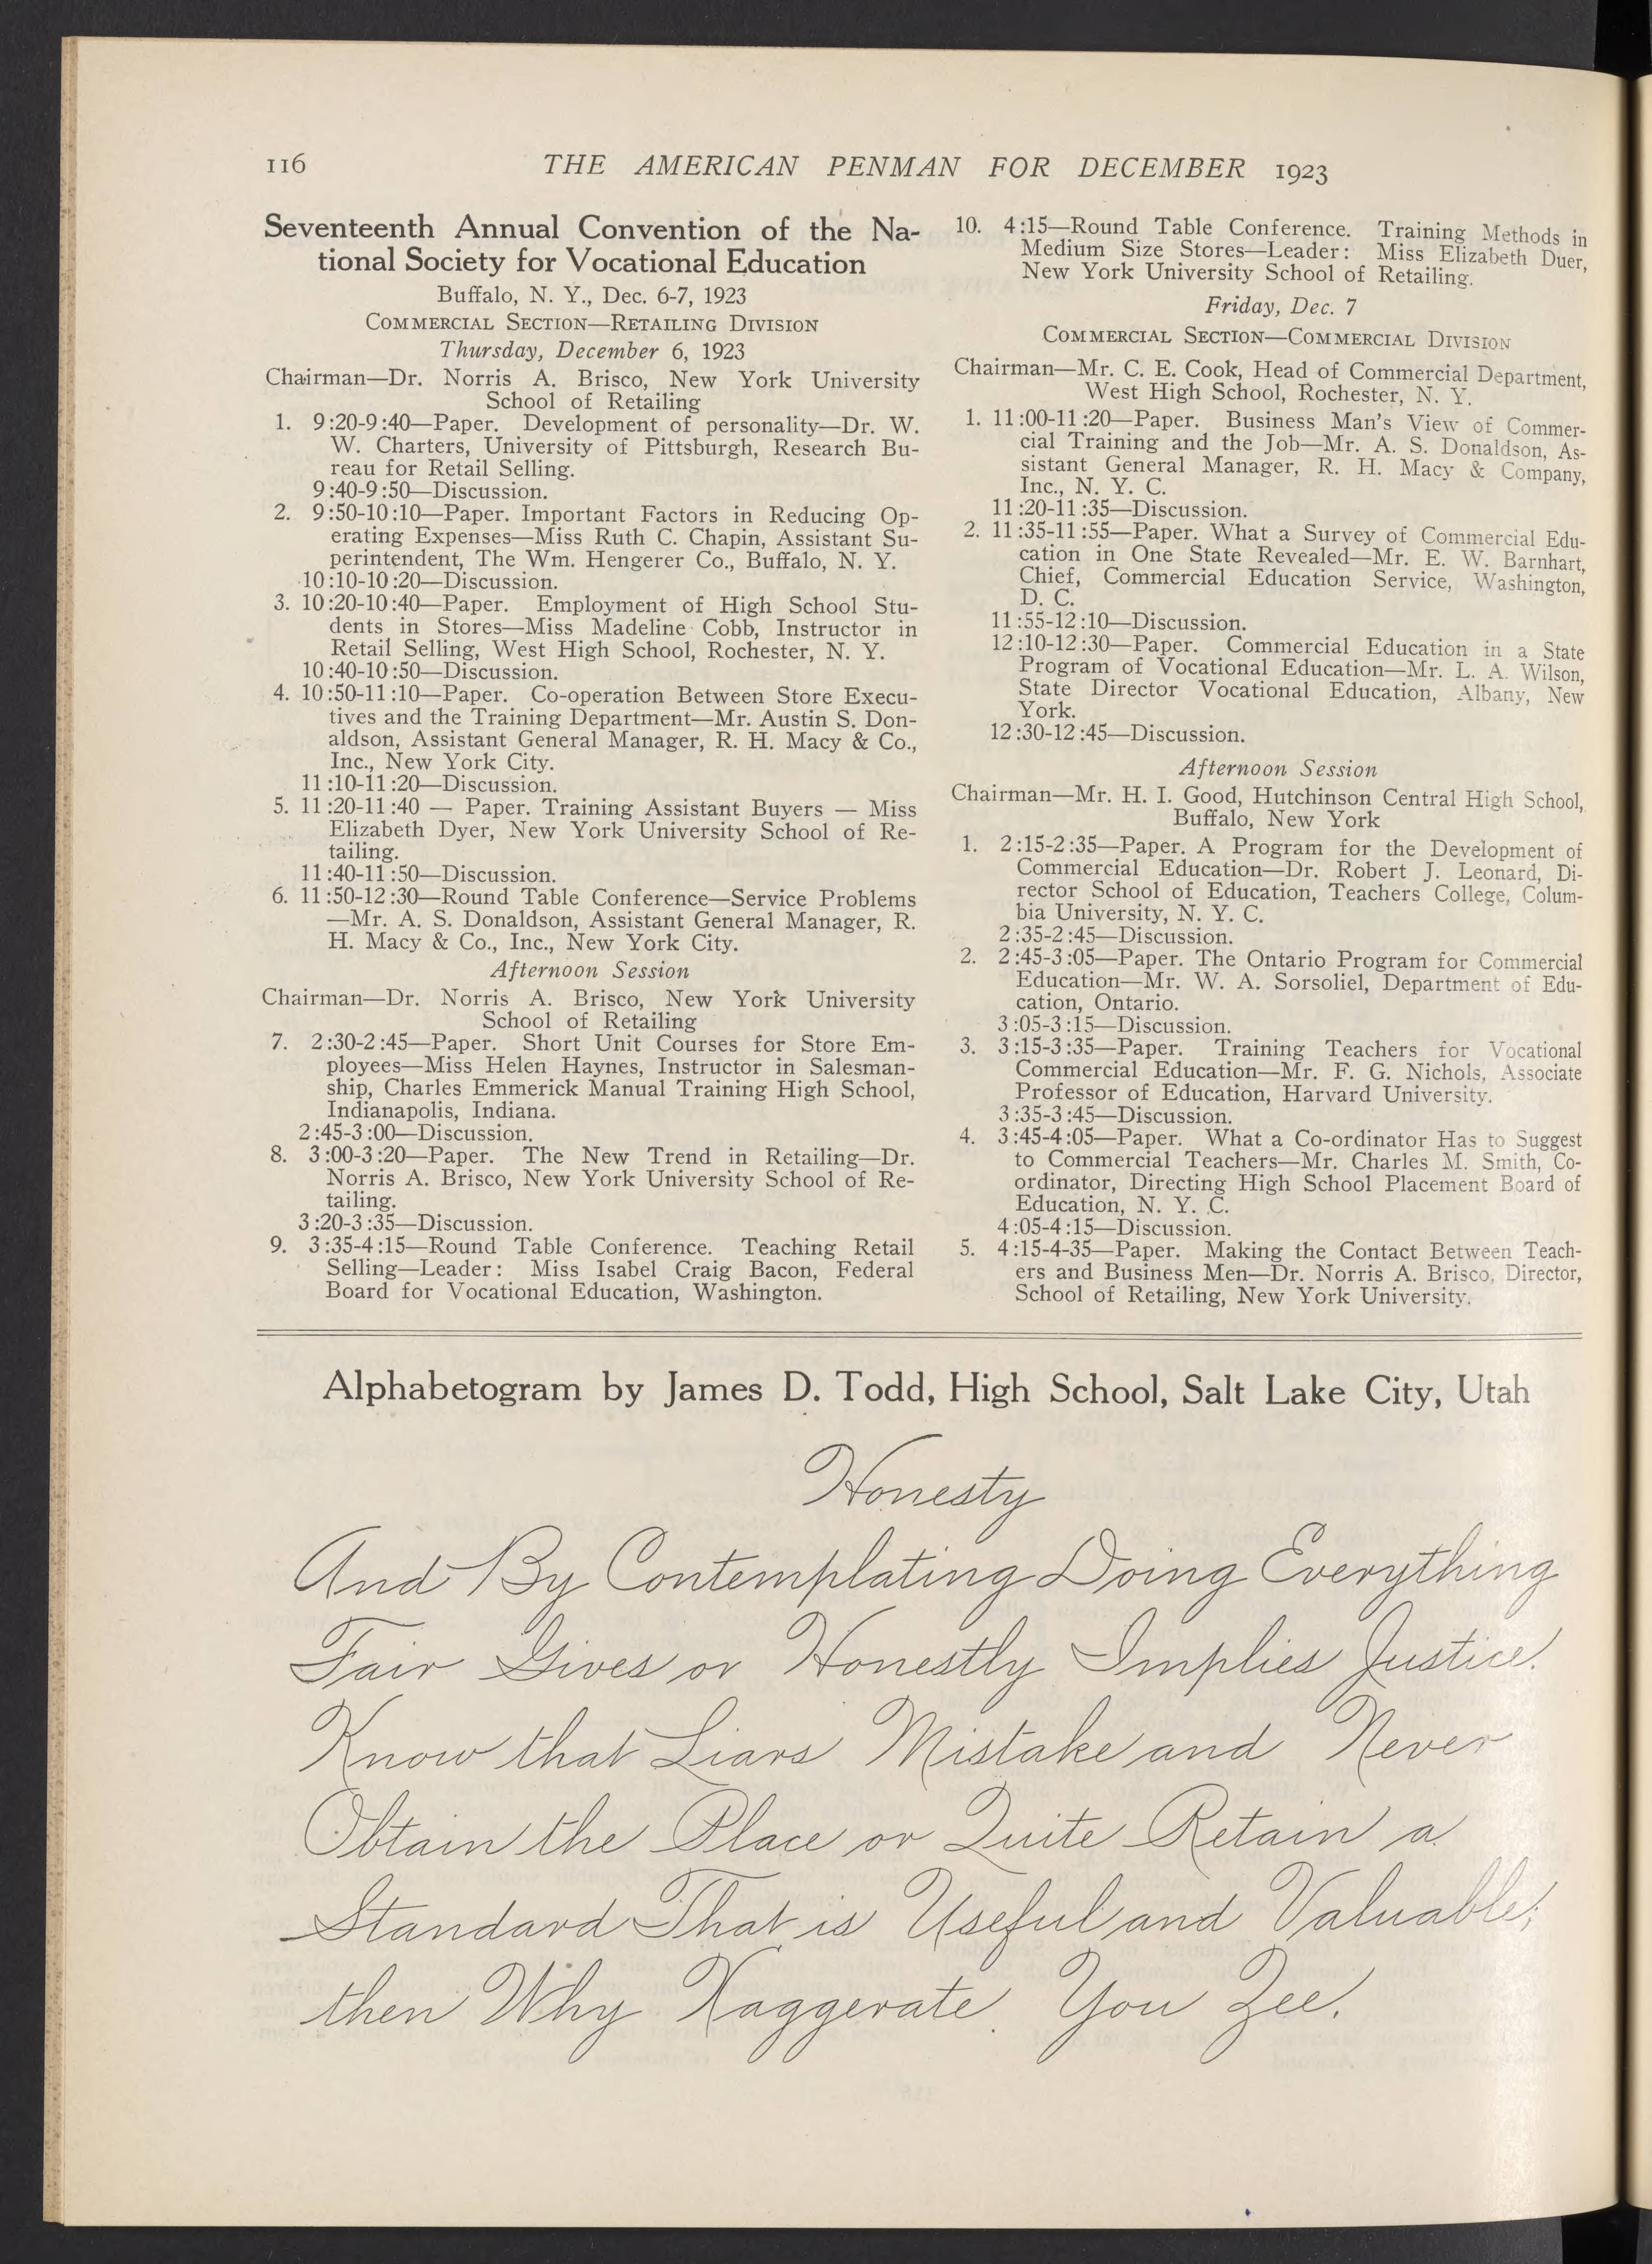 116 THE AMERICAN PENMAN FOR DECEMBER 1923
Seventeenth Annual Convention of the Na-
tional Society for Vocational Education
Buffalo, N. Y., Dec. 6-7, 1923
COMMERCIAL SECTION—RETAILING DIVISION
Thursday, December 6, 1923
Chairman—Dr. Norris A. Brisco, New York University
School of Retailing
1. 9:20-9:40—Paper. Development of personality—Dr. W.
W. Charters, University of Pittsburgh, Research Bu-
reau for Retail Selling.
9:40-9:50—Discussion.
2. 9:50-10:10—Paper. Important Factors in Reducing Op-
erating Expenses—Miss Ruth C. Chapin, Assistant Su-
perintendent, The Wm. Hengerer Co., Buffalo, N. Y.
10:10-10:20—Discussion.
3. 10:20-10:40—Paper. Employment of High School Stu-
dents in Stores—Miss Madeline Cobb, Instructor in
Retail Selling, West High School, Rochester, N. Y.
10:40-10:50—Discussion.
4. 10:50-11:10—Paper. Co-operation Between Store Execu-
tives and the Training Department—Mr. Austin S. Don-
aldson, Assistant General Manager, R. H. Macy & Co.,
Inc., New York City.
11:10-11:20—Discussion.
5. 11:20-11:40 — Paper. Training Assistant Buyers — Miss
Elizabeth Dyer, New York University School of Re-
tailing.
11:40-11:50—Discussion.
6. 11:50-12:30—Round Table Conference—Service Problems
—Mr. A. S. Donaldson, Assistant General Manager, R.
H. Macy & Co., Inc., New York City.
Afternoon Session
Chairman—Dr. Norris A. Brisco, New York University
School of Retailing
7. 2:30-2:45—Paper. Short Unit Courses for Store Em-
ployees—Miss Helen Haynes, Instructor in Salesman-
ship, Charles Emmerick Manual Training High School,
Indianapolis, Indiana.
2:45-3:00—Discussion.
8. 3:00-3:20—Paper. The New Trend in Retailing—Dr.
Norris A. Brisco, New York University School of Re-
tailing.
3:20-3:35—Discussion.
9. 3:35-4:15—Round Table Conference. Teaching Retail
Selling—Leader: Miss Isabel Craig Bacon, Federal
Board for Vocational Education, Washington.
10. 4:15—Round Table Conference. Training Methods in
Medium Size Stores—Leader: Miss Elizabeth Duer,
New York University School of Retailing.
Friday, Dec. 7
COMMERCIAL SECTION—COMMERCIAL DIVISION
Chairman—Mr. C. E. Cook, Head of Commercial Department,
West High School, Rochester, N. Y.
1. 11:00-11:20—Paper. Business Man's View of Commer-
cial Training and the Job—Mr. A. S. Donaldson, As-
sistant General Manager, R. H. Macy & Company,
Inc., N. Y. C.
11:20-11:35—Discussion.
2. 11:35-11:55—Paper. What a Survey of Commercial Edu-
cation in One State Revealed—Mr. E. W. Barnhart,
Chief, Commercial Education Service, Washington,
D. C.
11:55-12:10—Discussion.
12:10-12:30—Paper. Commercial Education in a State
Program of Vocational Education—Mr. L. A. Wilson,
State Director Vocational Education, Albany, New
York.
12:30-12:45—Discussion.
Afternoon Session
Chairman—Mr. H. I. Good, Hutchinson Central High School,
Buffalo, New York
1. 2:15-2:35—Paper. A Program for the Development of
Commercial Education—Dr. Robert J. Leonard, Di-
rector School of Education, Teachers College, Colum-
bia University, N. Y. C.
2:35-2:45—Discussion.
2. 2:45-3:05—Paper. The Ontario Program for Commercial
Education—Mr. W. A. Sorsoliel, Department of Edu-
cation, Ontario.
3:05-3:15—Discussion.
3. 3:15-3:35—Paper. Training Teachers for Vocational
Commercial Education—Mr. F. G. Nichols, Associate
Professor of Education, Harvard University.
3:35-3:45—Discussion.
4. 3:45-4:05—Paper. What a Co-ordinator Has to Suggest
to Commercial Teachers—Mr. Charles M. Smith, Co-
ordinator, Directing High School Placement Board of
Education, N. Y. C.
4:05-4:15—Discussion.
5. 4:15-4-35—Paper. Making the Contact Between Teach-
ers and Business Men—Dr. Norris A. Brisco, Director,
School of Retailing, New York University.
Alphabetogram by James D. Todd, High School, Salt Lake City, Utah
Honesty
And By Contemplating Doing Everything
Fair Gives or Honestly Implies Justice.
Know that Liars Mistake and Never
Obtain the Place or Quite Retain a
Standard That is Useful and Valuable;
then Why Xaggerate. You Zee.